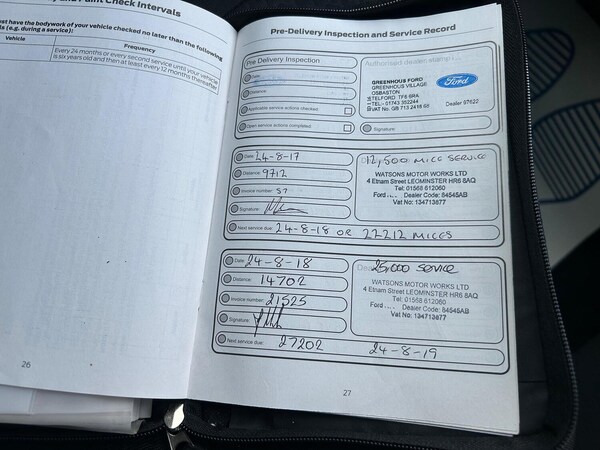 Paint Check Intervals
must have the bodywork of your vehicle checked no later than the following
(e.g. during a service):
Vehicle
Frequency
Every 24 months or every second service until your vehicle
is six years old and then at least every 12 months thereafter
26
Pre-Delivery Inspection and Service Record
Pre Delivery Inspection
Date:
Distance:
Applicable service actions checked:
Open service actions completed:
Authorised dealer stamp
GREENHOUS FORD
GREENHOUS VILLAGE
OSBASTON
TELFORD TF6 6RA
TEL:- 01743 352244
VAT No. GB 713 2416 68
Ford
Dealer 97620
Signature:
Date: 24-8-17
Distance: 9712
Invoice number: 57
Signature:
Next service due: 24-8-18 OR 22212 MILES
12,500 MILE SERVICE
WATSONS MOTOR WORKS LTD
4 Etnam Street LEOMINSTER HR6 8AQ
Tel: 01568 612060
Ford .... Dealer Code: 84545AB
Vat No: 134713877
Date: 24-8-18
Distance: 14702
Invoice number: 21525
Signature:
Next service due: 27202 24-8-19
25,000 SERVICE
WATSONS MOTOR WORKS LTD
4 Etnam Street LEOMINSTER HR6 8AQ
Tel: 01568 612060
Ford .... Dealer Code: 84545AB
Vat No: 134713877
27